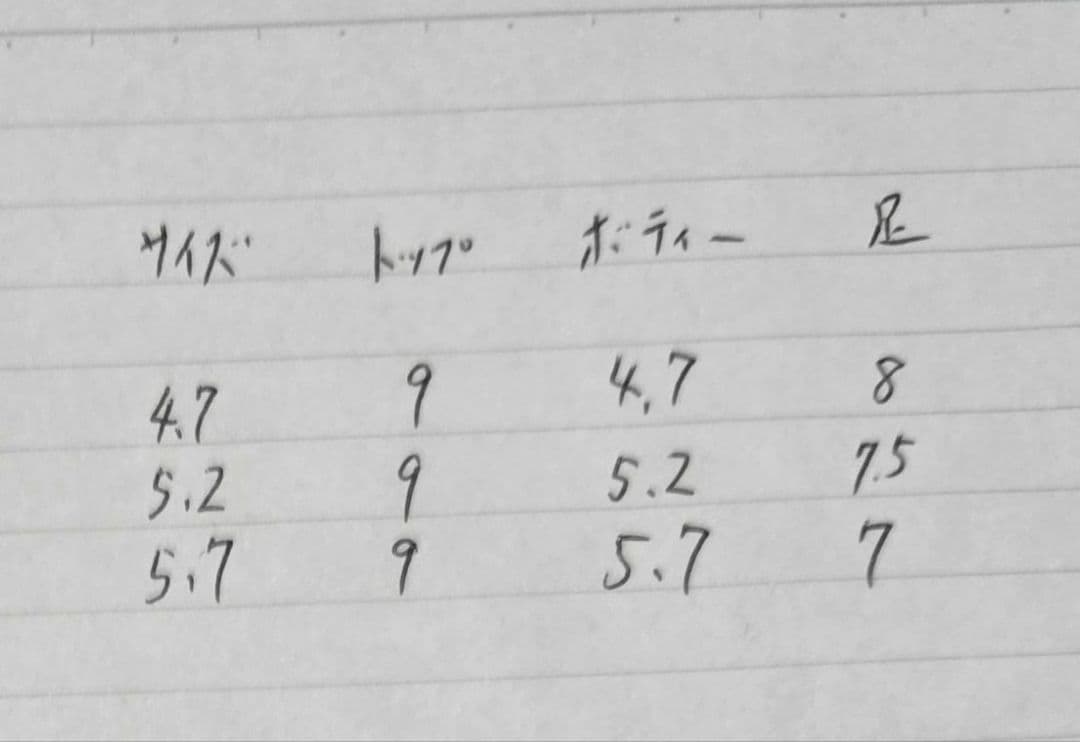 サイズ トップ ボディー 足
4.7 9 4.7 8
5.2 9 5.2 7.5
5.7 9 5.7 7